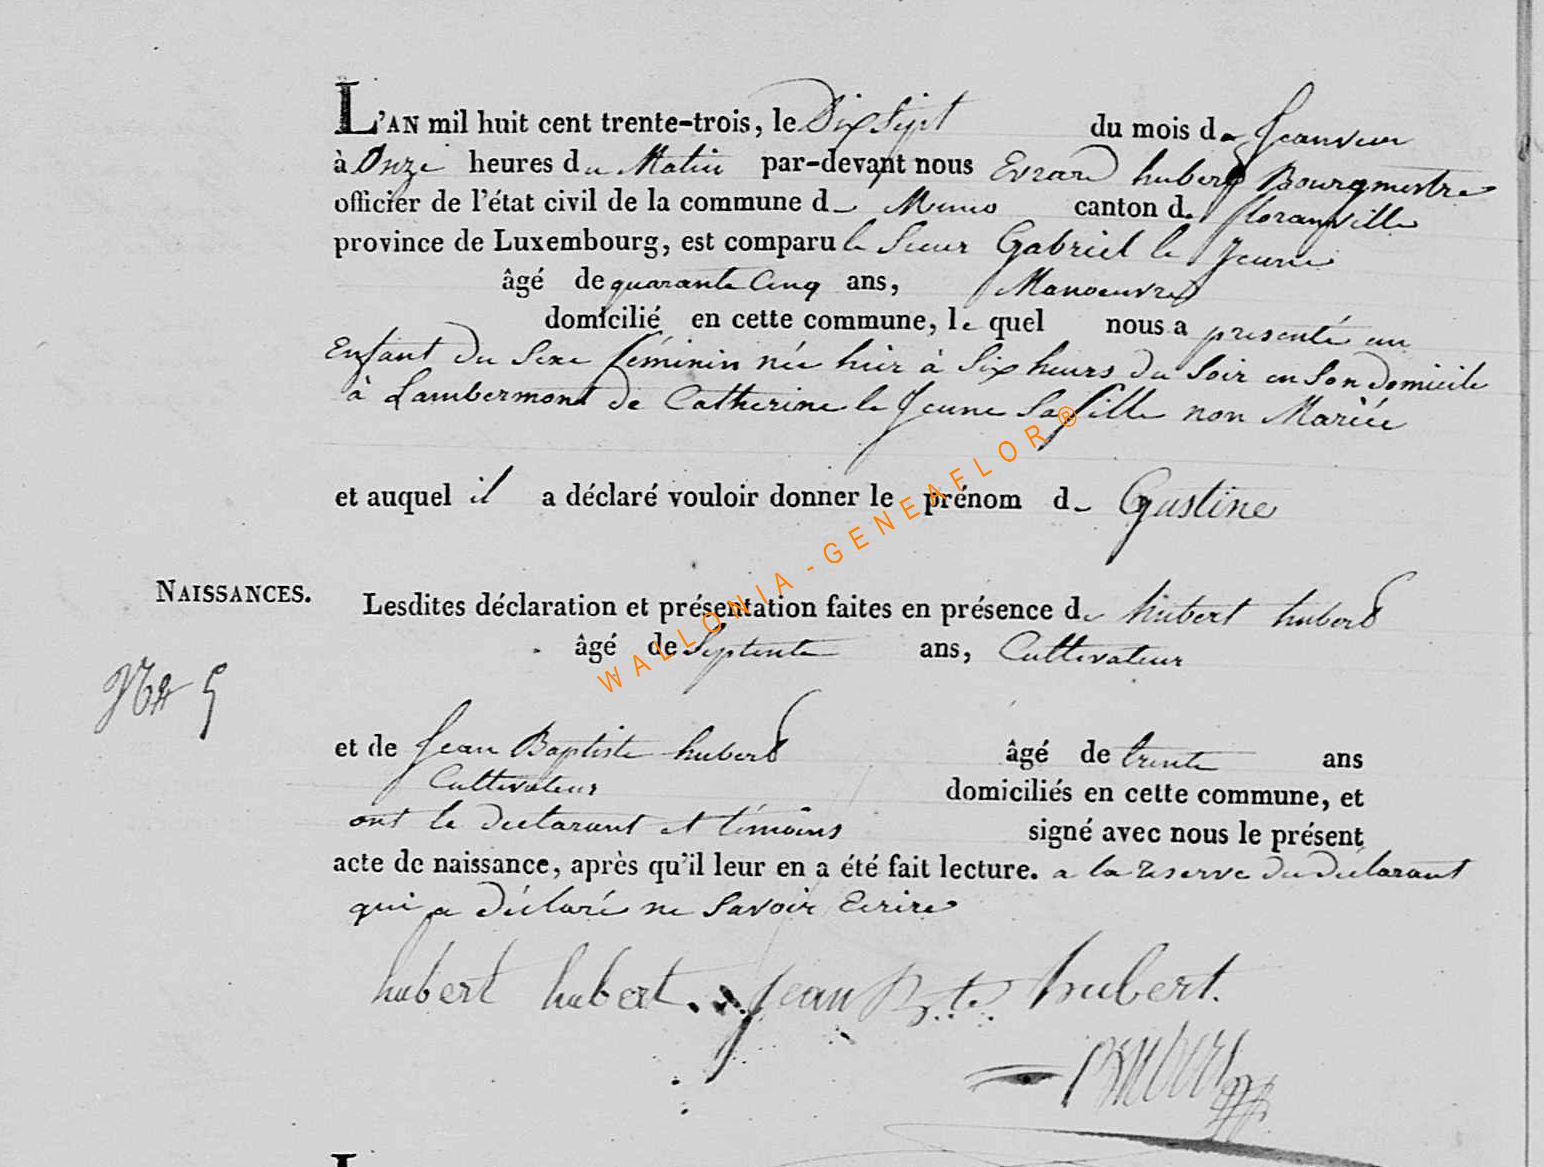 L'AN mil huit cent trente-trois, le Dix Sept du mois de Jeanvier
à Onze heures du Matin par-devant nous Evrard hubert Bourgmestre
officier de l'état civil de la commune de Muno canton de floranville
province de Luxembourg, est comparu le Sieur Gabriel le Jeune
âgé de quarante Cinq ans, Manoeuvre
domicilié en cette commune, le quel nous a presenté un
Enfant du Sexe féminin née hier à Six heurs du Soir en Son domicile
à Lambermont de Catherine le Jeune Sa fille non Mariée
et auquel il a déclaré vouloir donner le prénom de Gustine
NAISSANCES.
Lesdites déclaration et présentation faites en présence de hubert hubert
âgé de Septente ans, Cultivateur
No 5
et de Jean Baptiste hubert âgé de trente ans
Cultivateur domiciliés en cette commune, et
ont le declarant et témoins signé avec nous le présent
acte de naissance, après qu'il leur en a été fait lecture. a la reserve du déclarant
qui a déclaré ne Savoir Ecrire
hubert hubert. Jean Bte hubert.
WALLONIA - GENEAFLOR®